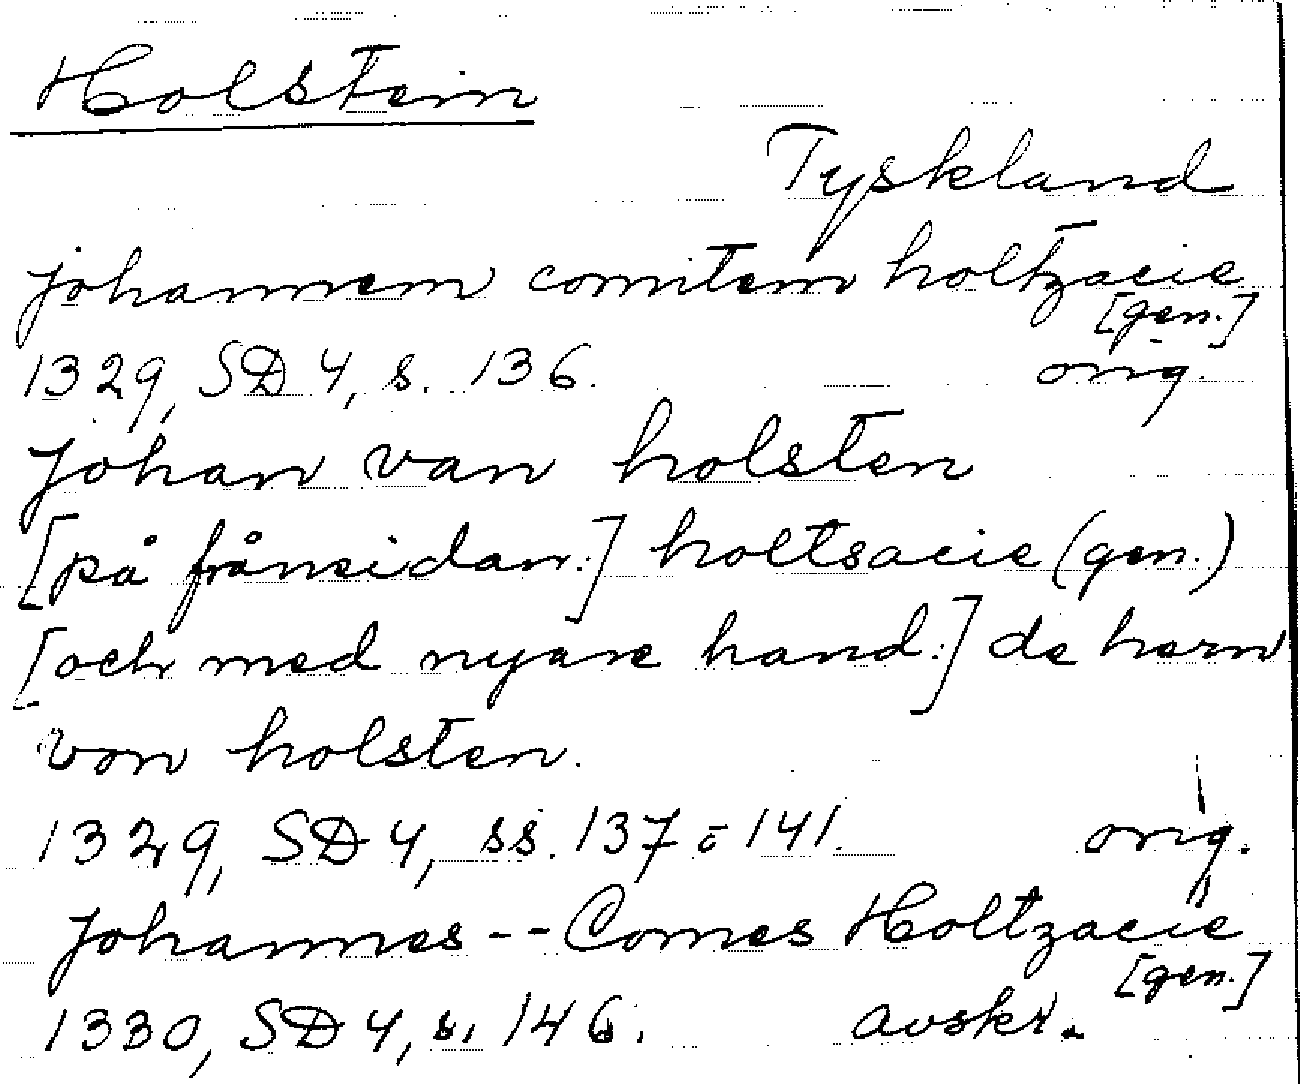 Holstein
Tyskland
johannem comitem holtzacie
[gen.]
1329, SD 4, s. 136. orig.
Johan van holsten
[på frånsidan:] holtsacie (gen.)
[och med nyare hand:] de hern
von holsten.
1329, SD 4, ss. 137 o 141. orig.
Johannes -- Comes Holtzacie
[gen.]
1330, SD 4, s. 146. avskr.